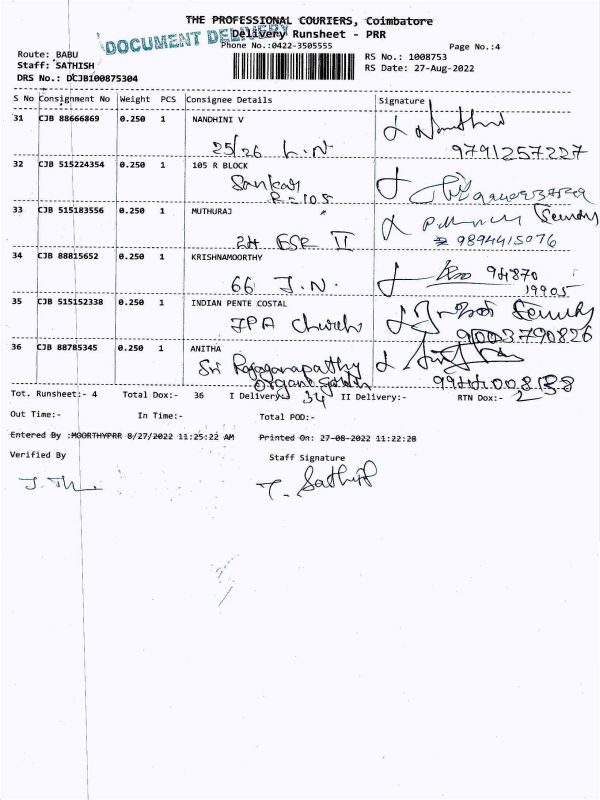 THE PROFESSIONAL COURIERS, Coimbatore
DOCUMENT DELIVERY
Delivery Runsheet - PRR
Phone No.:0422-3505555
Page No.:4
Route: BABU
RS No.: 1008753
Staff: SATHISH
RS Date: 27-Aug-2022
DRS No.: DCJB100875304
S No Consignment No Weight PCS Consignee Details Signature
31 CJB 88666869 0.250 1 NANDHINI V
25/26 L.N 9791257227
32 CJB 515224354 0.250 1 105 R BLOCK
Sankar
R=105
33 CJB 515183556 0.250 1 MUTHURAJ
24 ESR II 9894415076
34 CJB 88815652 0.250 1 KRISHNAMOORTHY
66 J.N. 94870
19905
35 CJB 515152338 0.250 1 INDIAN PENTE COSTAL
IPA Church 9003790826
36 CJB 88785345 0.250 1 ANITHA
Sri
Tot. Runsheet:- 4 Total Dox:- 36 I Delivery:- 34 II Delivery:- RTN Dox:- 2
Out Time:- In Time:- Total POD:-
Entered By :MOORTHYPRR 8/27/2022 11:25:22 AM Printed On: 27-08-2022 11:22:28
Verified By Staff Signature
T. Sathish